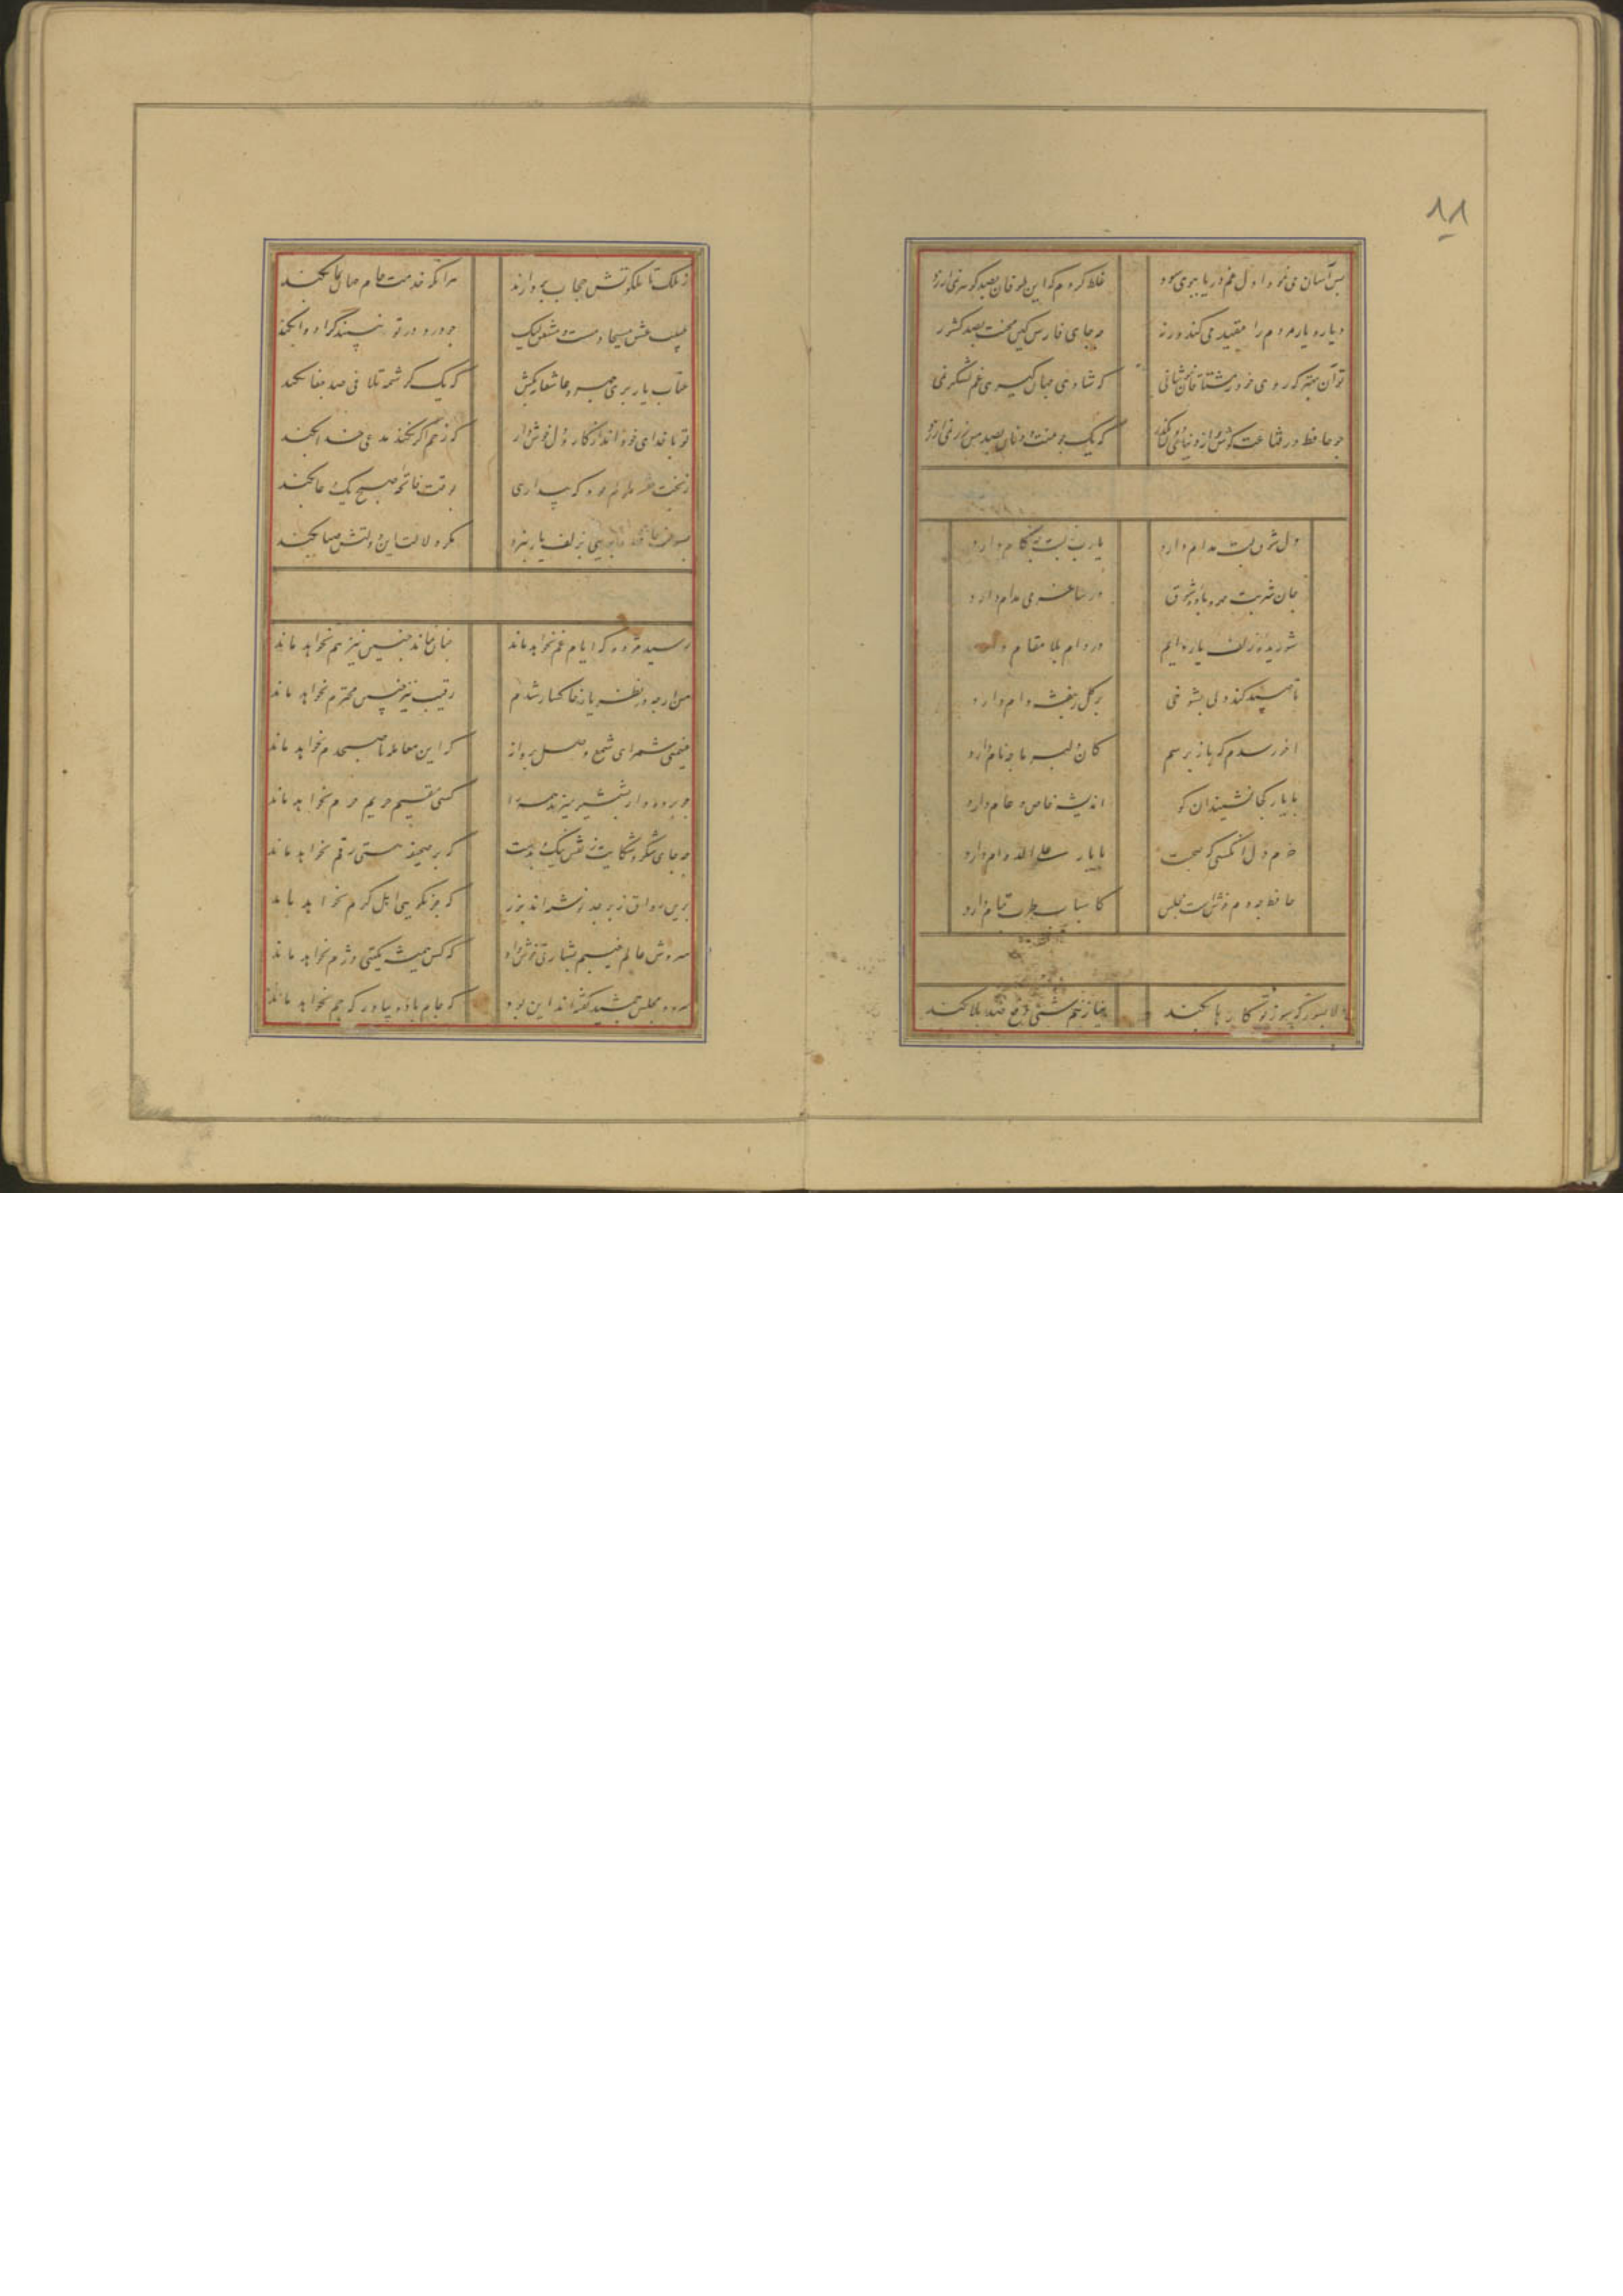 ۸۸
بس آسان می نمود اول غم دریا ببوی سود غلط کردم که این طوفان بصد کوهر نمی ارزد
دیار و یار مردم را مقید می کند ورنه چه جای فارس کین محنت بصد کشور
تو آن بهتر که روی خود ز مشتاقان بپوشانی که شادی جهان کیری غم لشکر نمی
چو حافظ در قناعت کوش و از دنیای دون بگذر که یک جو منت دونان بصد من زر نمی ارزد
دل شوق لبت مدام دارد یارب ز لبت چه کام دارد
جان شربت مهر و باده شوق در ساغر می مدام دارد
شوریده زلف یار دایم در دام بلا مقام دارد
تا صید کند دلی بشوخی بر کل ز بنفشه دام دارد
آخر رسدم که باز پرسم کان دلبر ما چه نام دارد
با یار کجا نشیند آن کو اندیشه خاص و عام دارد
خرم دل آنکسی که صحبت با یار علی الدوام دارد
حافظ چو دم خوش است مجلس کاسباب طرب تمام دارد
دلا بسوز که سوز تو کارها بکند نیاز نیم شبی دفع صد بلا بکند
ز ملک تا ملکوتش حجاب بردارند هر آنکه خدمت جام جهان نما بکند
طبیب عشق مسیحا دمست و مشفق لیک چو درد در تو نبیند کرا دوا بکند
عتاب یار پری چهره عاشقانه بکش که یک کرشمه تلافی صد جفا بکند
تو با خدای خود انداز کار و دل خوش دار که رحم اگر نکند مدعی خدا بکند
ز بخت خفته ملولم بود که بیداری بوقت فاتحه صبح یک دعا بکند
بسوخت حافظ و بویی بزلف یار نبرد مکر دلالت این دولتش صبا بکند
رسید مژده که ایام غم نخواهد ماند چنان نماند چنین نیز هم نخواهد ماند
من ارچه در نظر یار خاکسار شدم رقیب نیز چنین محترم نخواهد ماند
غنیمتی شمر ای شمع وصل پروانه که این معامله تا صبحدم نخواهد ماند
چو پرده دار بشمشیر میزند همه را کسی مقیم حریم حرم نخواهد ماند
چه جای شکر و شکایت ز نقش نیک و بدست که بر صحیفه هستی رقم نخواهد ماند
برین رواق زبرجد نوشته اند بزر که جز نکویی اهل کرم نخواهد ماند
سروش عالم غیبم بشارتی خوش داد که کس همیشه بکیتی دژم نخواهد ماند
سرود مجلس جمشید کفته اند این بود که جام باده بیاور که جم نخواهد ماند